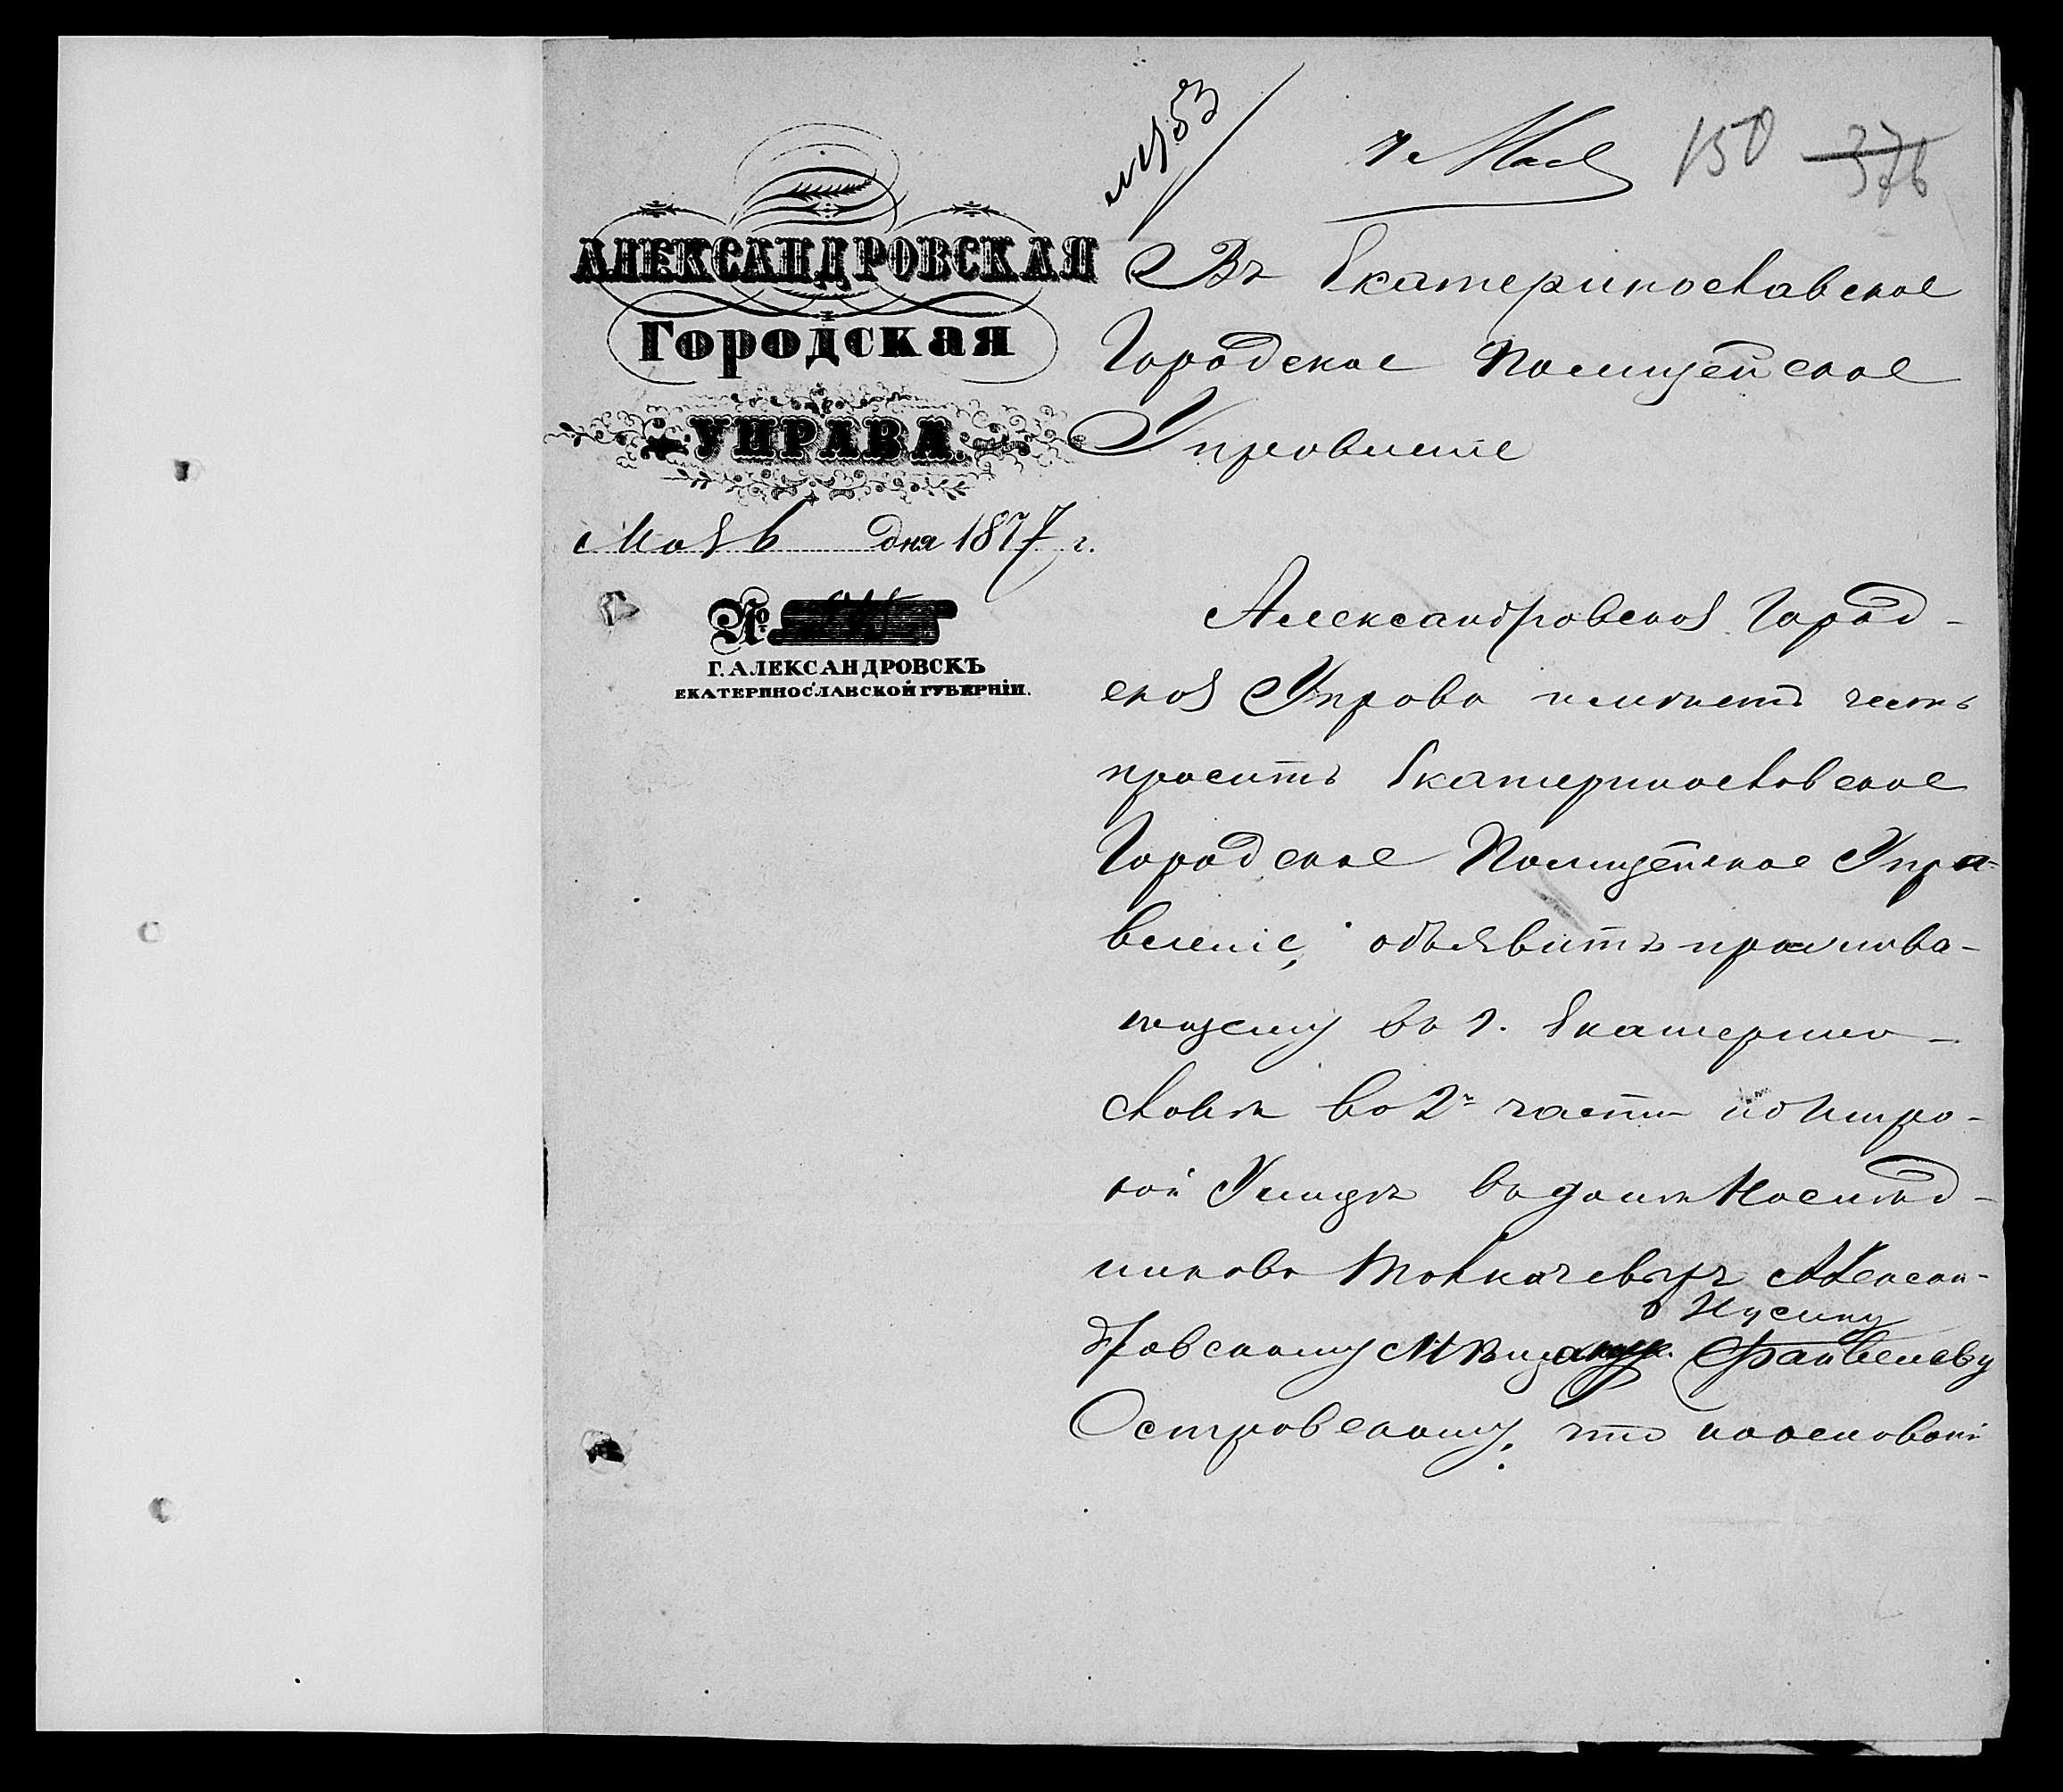 150 376
7 Мая
АЛЕКСАНДРОВСКАЯ
Городская
УПРАВА.
Мая 6 дня 1877 г.
№
Г. АЛЕКСАНДРОВСКЪ
ЕКАТЕРИНОСЛАВСКОЙ ГУБЕРНІИ.
Въ Екатеринославское
Городское Полицейское
Управленіе
Александровская Город-
ская Управа имѣетъ честь
просить Екатеринославское
Городское Полицейское Упра-
вленіе, объявить прожива-
ющему въ г. Екатерино-
славѣ во 2й части по Широ-
кой Улицѣ въ домѣ Наслѣд-
никовъ Толкачевыхъ Алексан-
дровскому Мѣщанину Нусину
Файвелеву
Островскому, что на основаніи